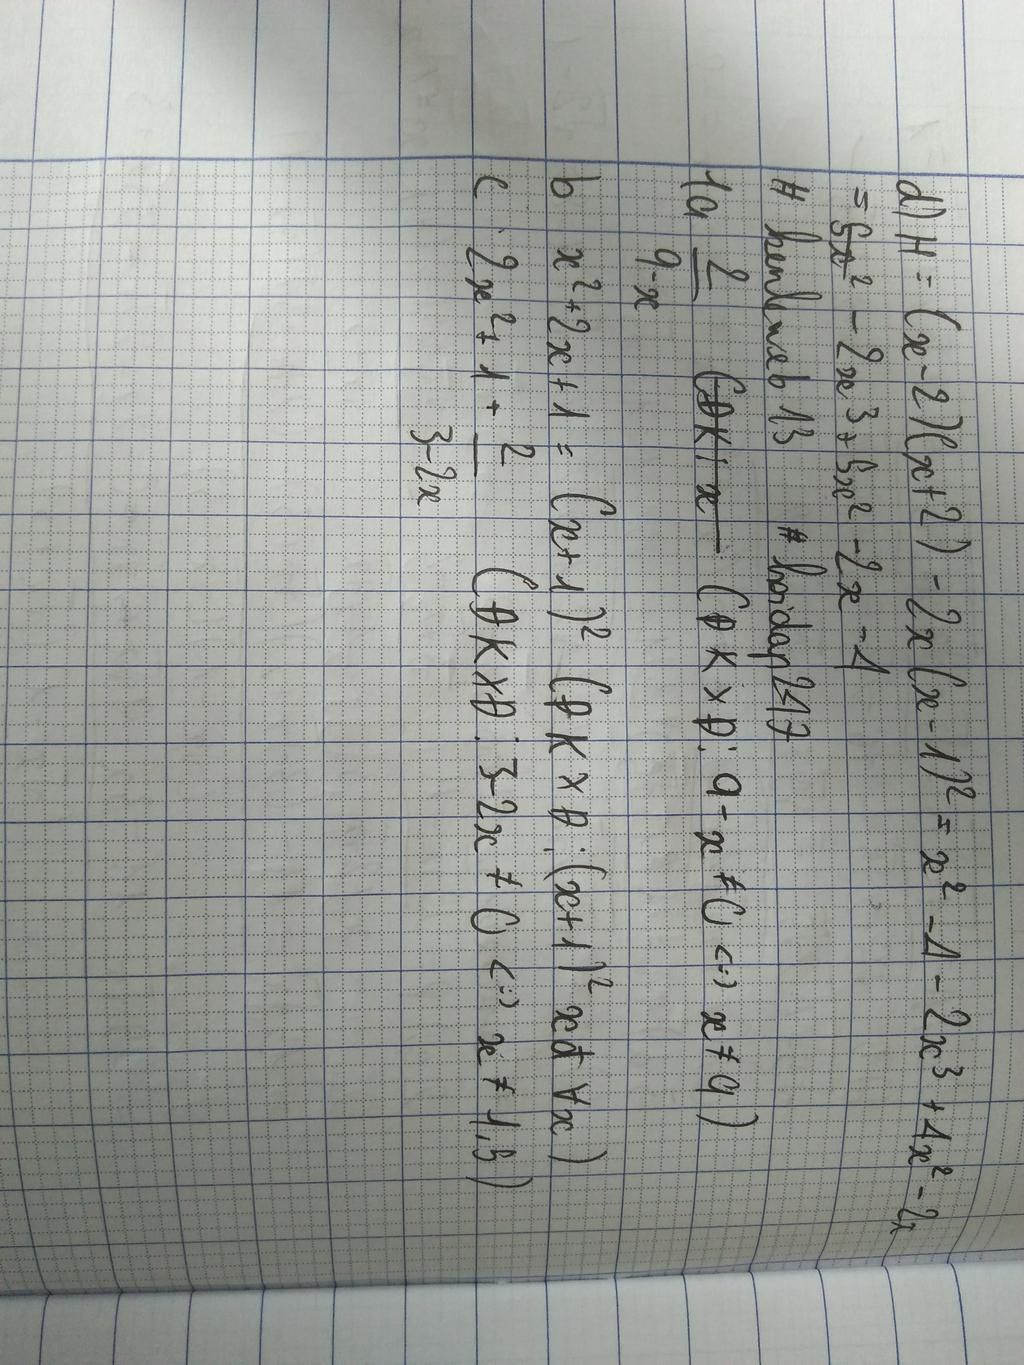 d) H = (x-2)(x+2) - 2x(x-1)² = x² - 4 - 2x³ + 4x² - 2x
= 5x² - 2x³ + 5x² - 2x - 4
# hoidap247
1a 2/(9-x) (ĐK: x (ĐKXĐ: 9-x ≠ 0 <=> x ≠ 9)
b x²+2x+1 = (x+1)² (ĐKXĐ: (x+1)² xđ ∀x)
c 2x²+1 + 2/(3-2x) (ĐKXĐ: 3-2x ≠ 0 <=> x ≠ 1,5)